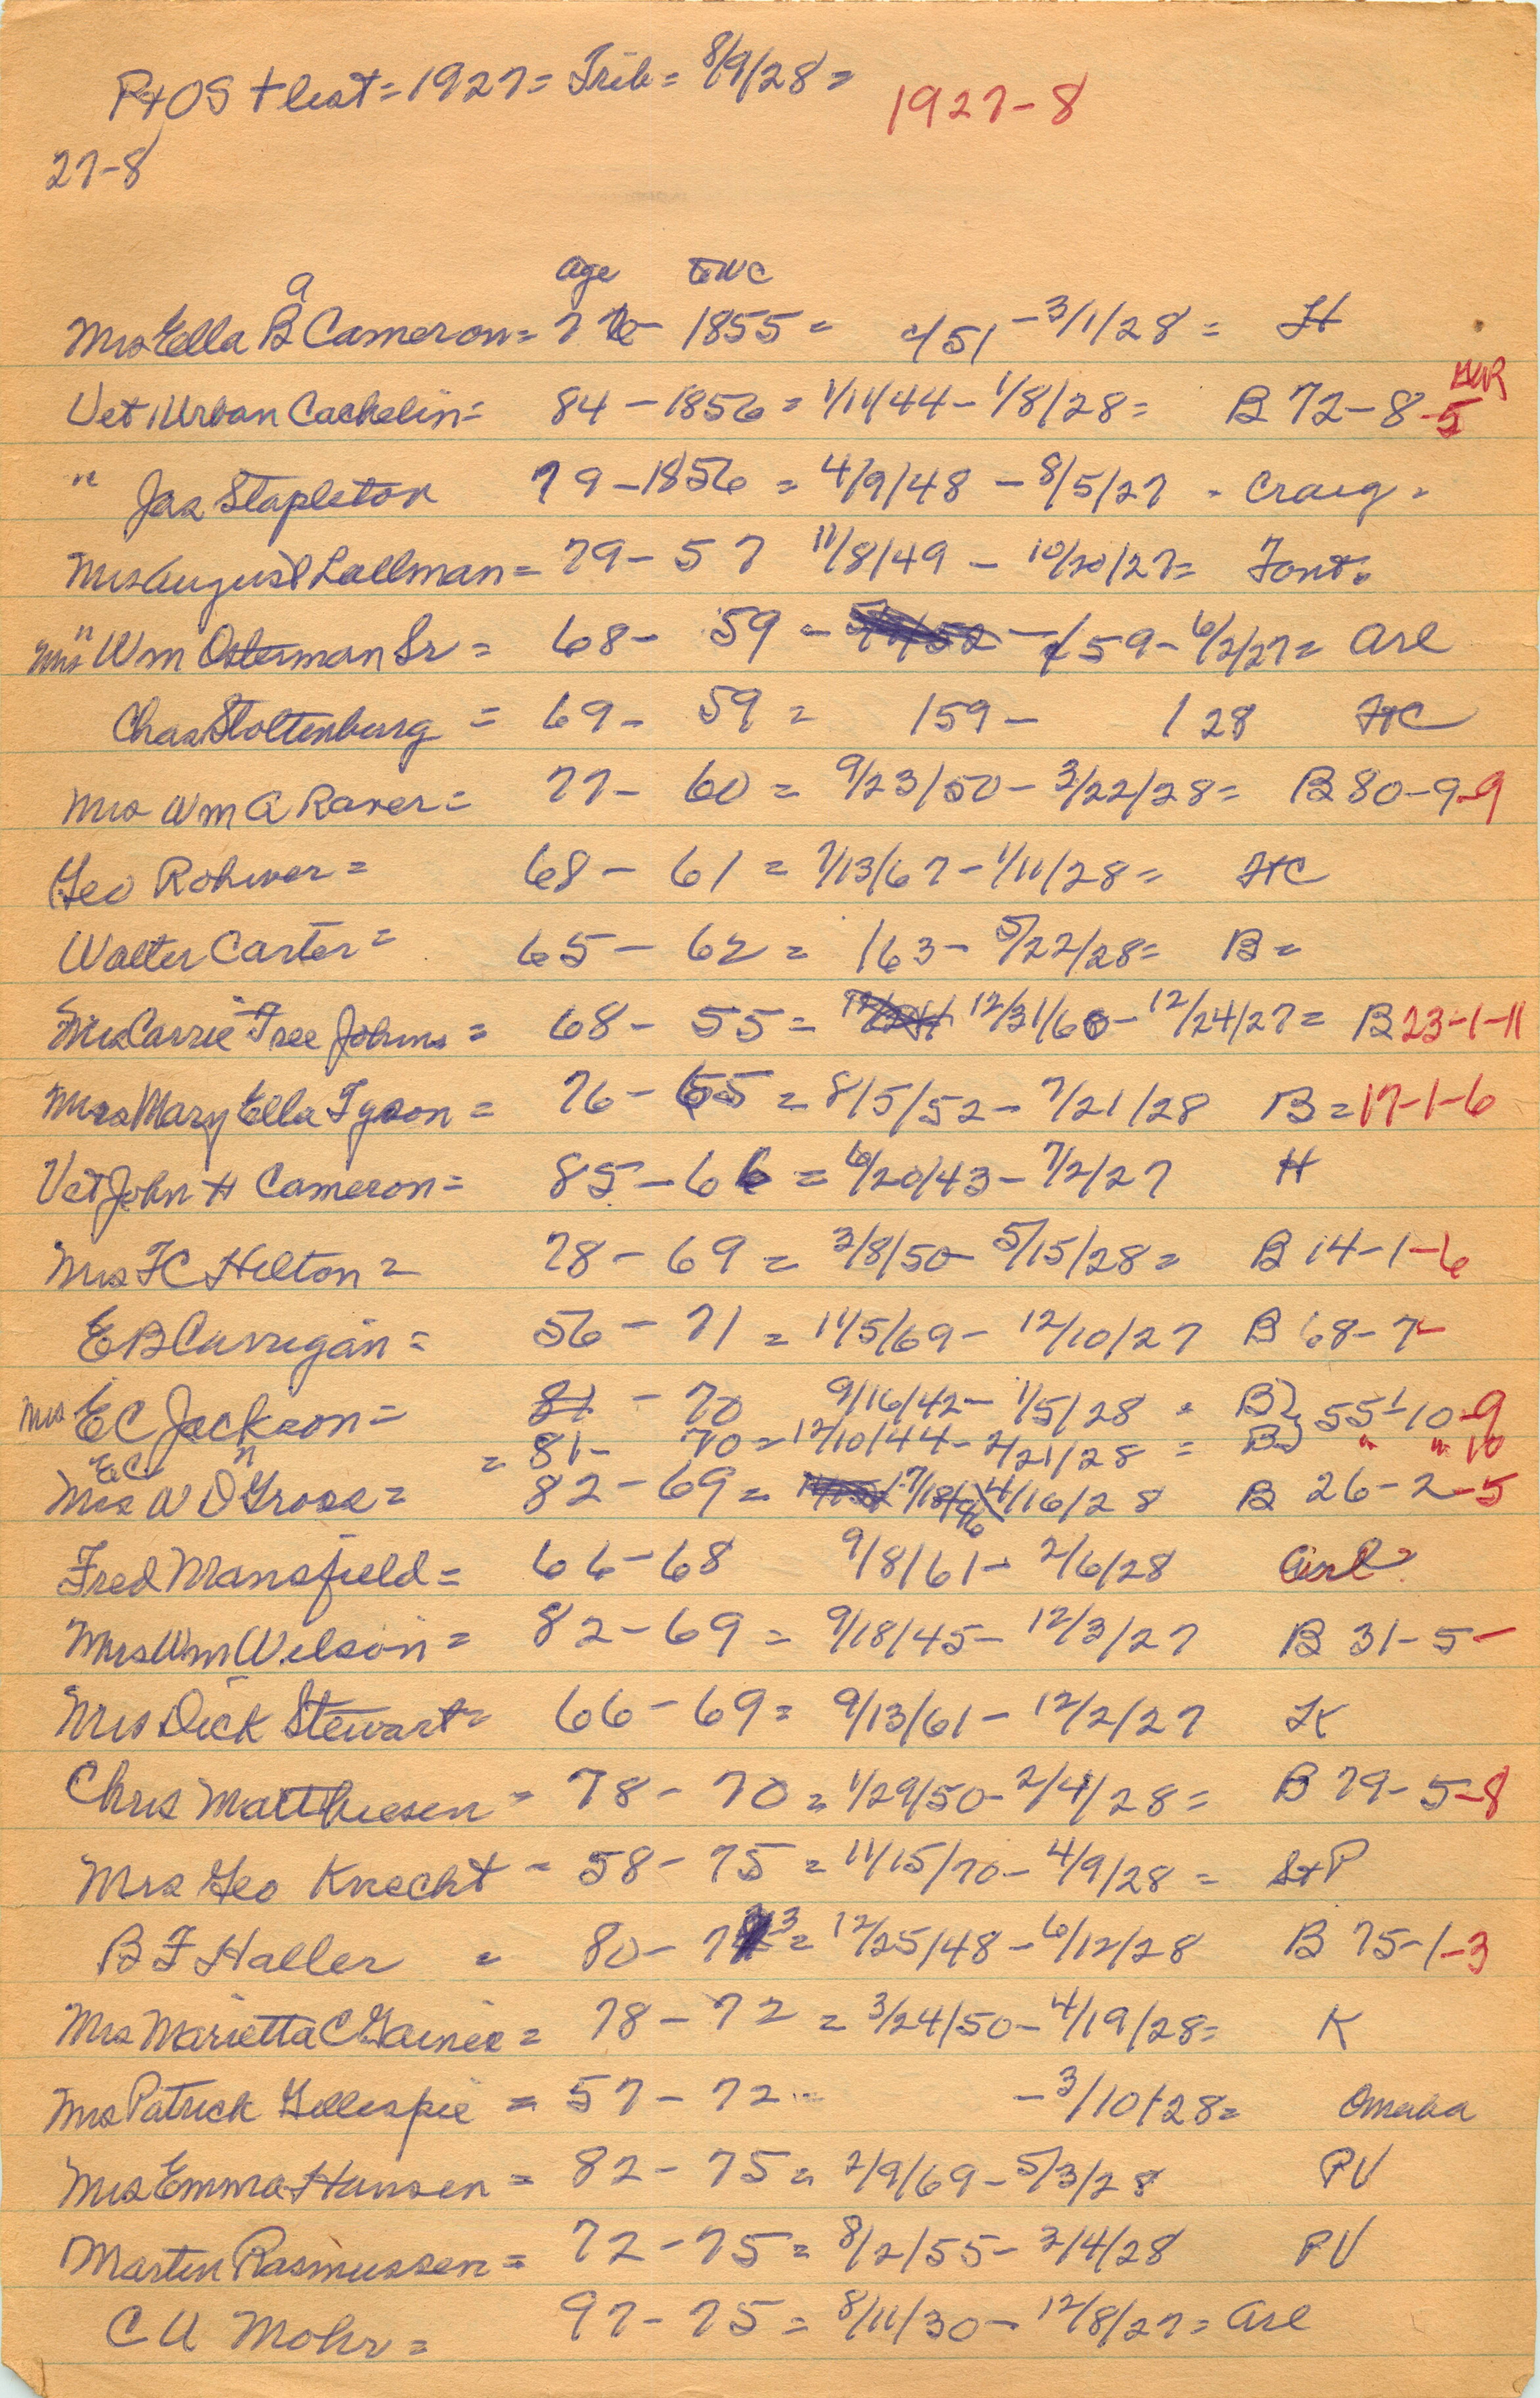 P+OS + list = 1927 = Trib = 8/9/28 =
1927-8
27-8
age TWC
a
Mrs Ella B Cameron = 1855 = /51 - 3/1/28 = H
Vet Urban Cachelin = 84 - 1856 = 1/11/44 - 1/8/28 = B 72-8-5
" Jas Stapleton 79 - 1856 = 4/9/48 - 8/5/27 - Craig -
Mrs August Lallman = 79 - 57 11/8/49 - 10/20/27 = Font.
Mrs " Wm Osterman Sr = 68 - 59 - /59 - 6/2/27 = Arl
Chas Stoltenburg = 69 - 59 = /59 - / 28 FtC
Mrs Wm A Raver = 77 - 60 = 9/23/50 - 3/22/28 = B 80-9-9
Geo Rohwer = 68 - 61 = 7/13/67 - 1/11/28 = FtC
Walter Carter = 65 - 62 = /63 - 5/22/28 = B =
Mrs Carrie Tree Johns = 68 - 55 = 12/31/60 - 12/24/27 = B 23-1-11
Mrs Mary Ella Tyson = 76 - 65 = 8/5/52 - 7/21/28 B = 17-1-6
Vet John H Cameron = 85 - 66 = 6/20/43 - 7/2/27 H
Mrs FC Hilton = 78 - 69 = 3/8/50 - 5/15/28 = B 14-1-6
EB Carrigan = 56 - 71 = 11/5/69 - 12/10/27 B 68-7-
Mrs EC Jackson = 81 - 70 9/16/42 - 1/5/28 - B} 55-10-9
EC = 81 - 70 = 12/10/44 - 2/21/28 = B} " " 10
n
Mrs W D Gross = 82 - 69 = 7/18/46 4/16/28 B 26-2-5
Fred Mansfield = 66 - 68 9/8/61 - 2/6/28 Arl
Mrs Wm Wilson = 82 - 69 = 9/18/45 - 12/3/27 B 31-5-
Mrs Dick Stewart = 66 - 69 = 9/13/61 - 12/2/27 K
Chris Matthiesen = 78 - 70 = 1/29/50 - 2/4/28 = B 79-5-8
Mrs Geo Knecht = 58 - 75 = 11/15/70 - 4/9/28 = StP
B F Haller = 80 - 73 = 12/25/48 - 6/12/28 B 75-1-3
Mrs Marietta C Gaines = 78 - 72 = 3/24/50 - 4/19/28 = K
Mrs Patrick Gillespie = 57 - 72 - - 3/10/28 = Omaha
Mrs Emma Hansen = 82 - 75 = 2/9/69 - 5/3/28 PV
Martin Rasmussen = 72 - 75 = 8/2/55 - 3/4/28 PV
C A Mohr = 97 - 75 = 8/11/30 - 12/8/27 = Arl